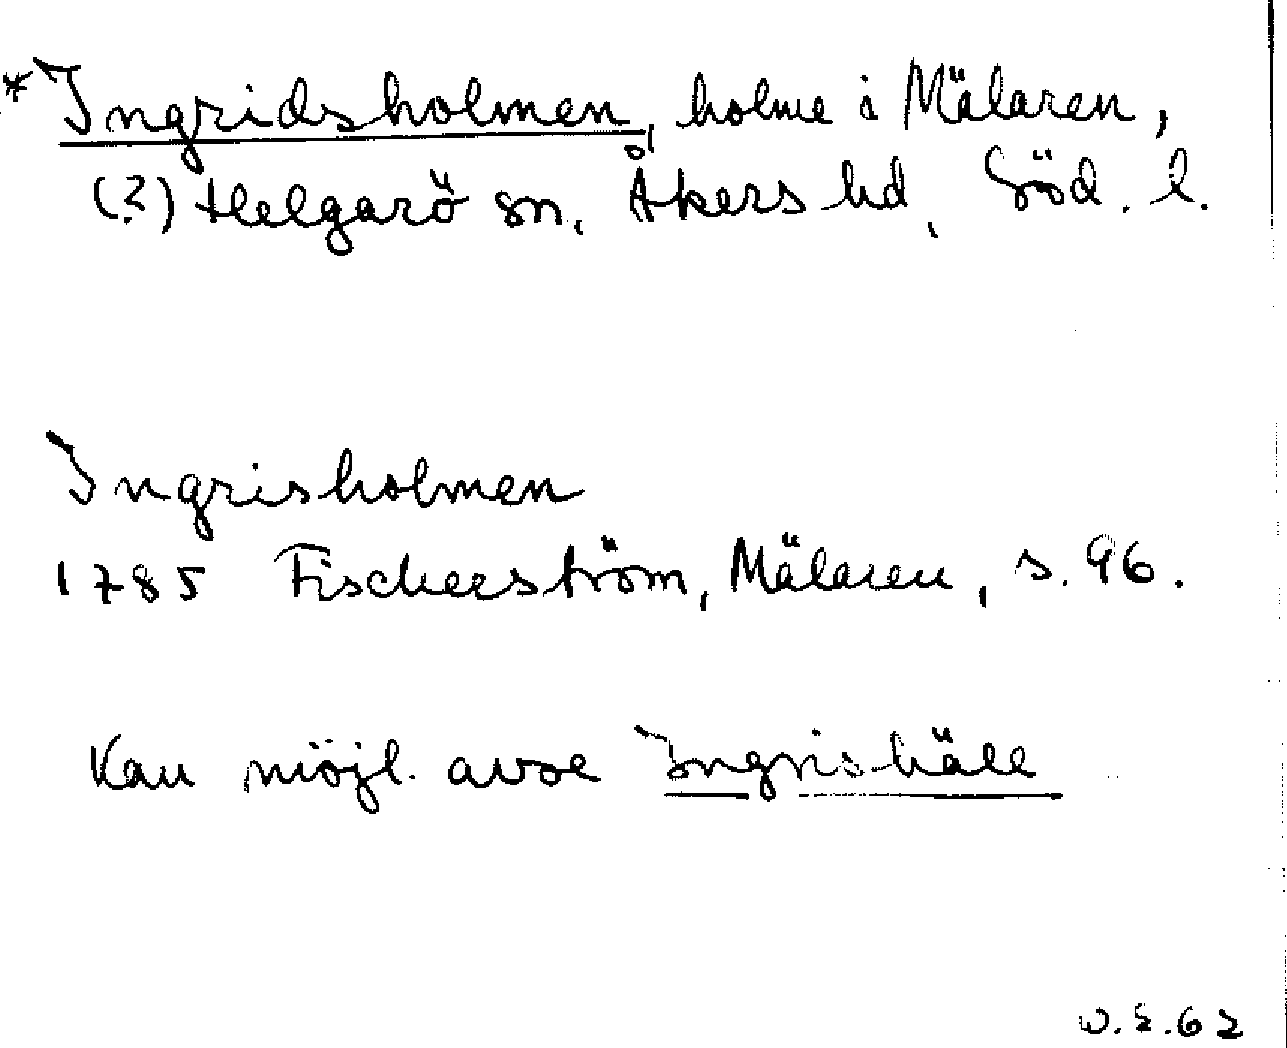 *Ingridsholmen, holme i Mälaren,
(?) Helgarö sn, Åkers hd, Söd. l.
Ingrisholmen
1785 Fischerström, Mälaren, s. 96.
Kan möjl. avse Ingrishäll
W.E.62